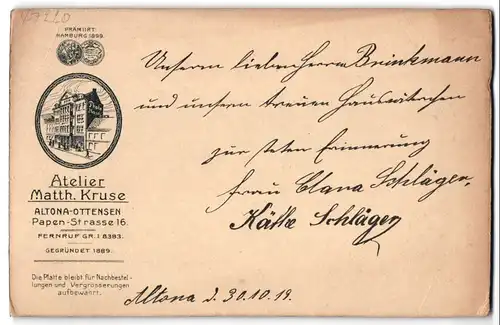 PRÄMIIRT:
HAMBURG 1899.
Atelier
Matth. Kruse
ALTONA-OTTENSEN
Papen-Strasse 16.
FERNRUF GR. I 8393.
GEGRÜNDET 1889.
Die Platte bleibt für Nachbestel-
lungen und Vergrösserungen
aufbewahrt.
Unseren lieben Herrn Brinkmann
und unsern treuen
zur steten Erinnerung
Frau Clara Schlägen,
Käthe Schlägen
Altona d. 30.10.19.